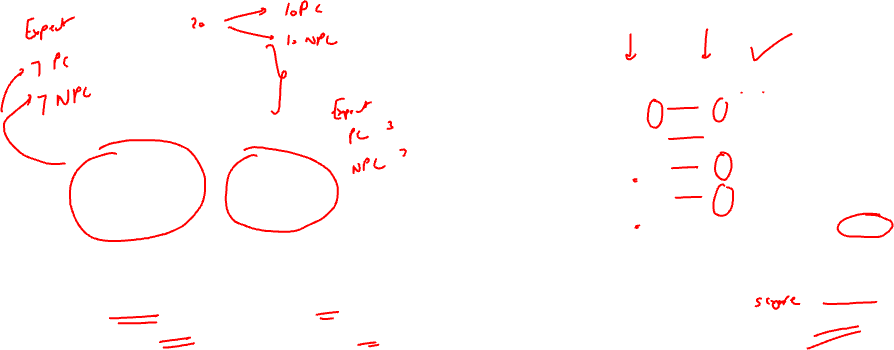 Expert
7 PC
7 NPC
20
10 PC
10 NPC
Expert
PC 3
NPC
0 — 0
— 0
— 0
score